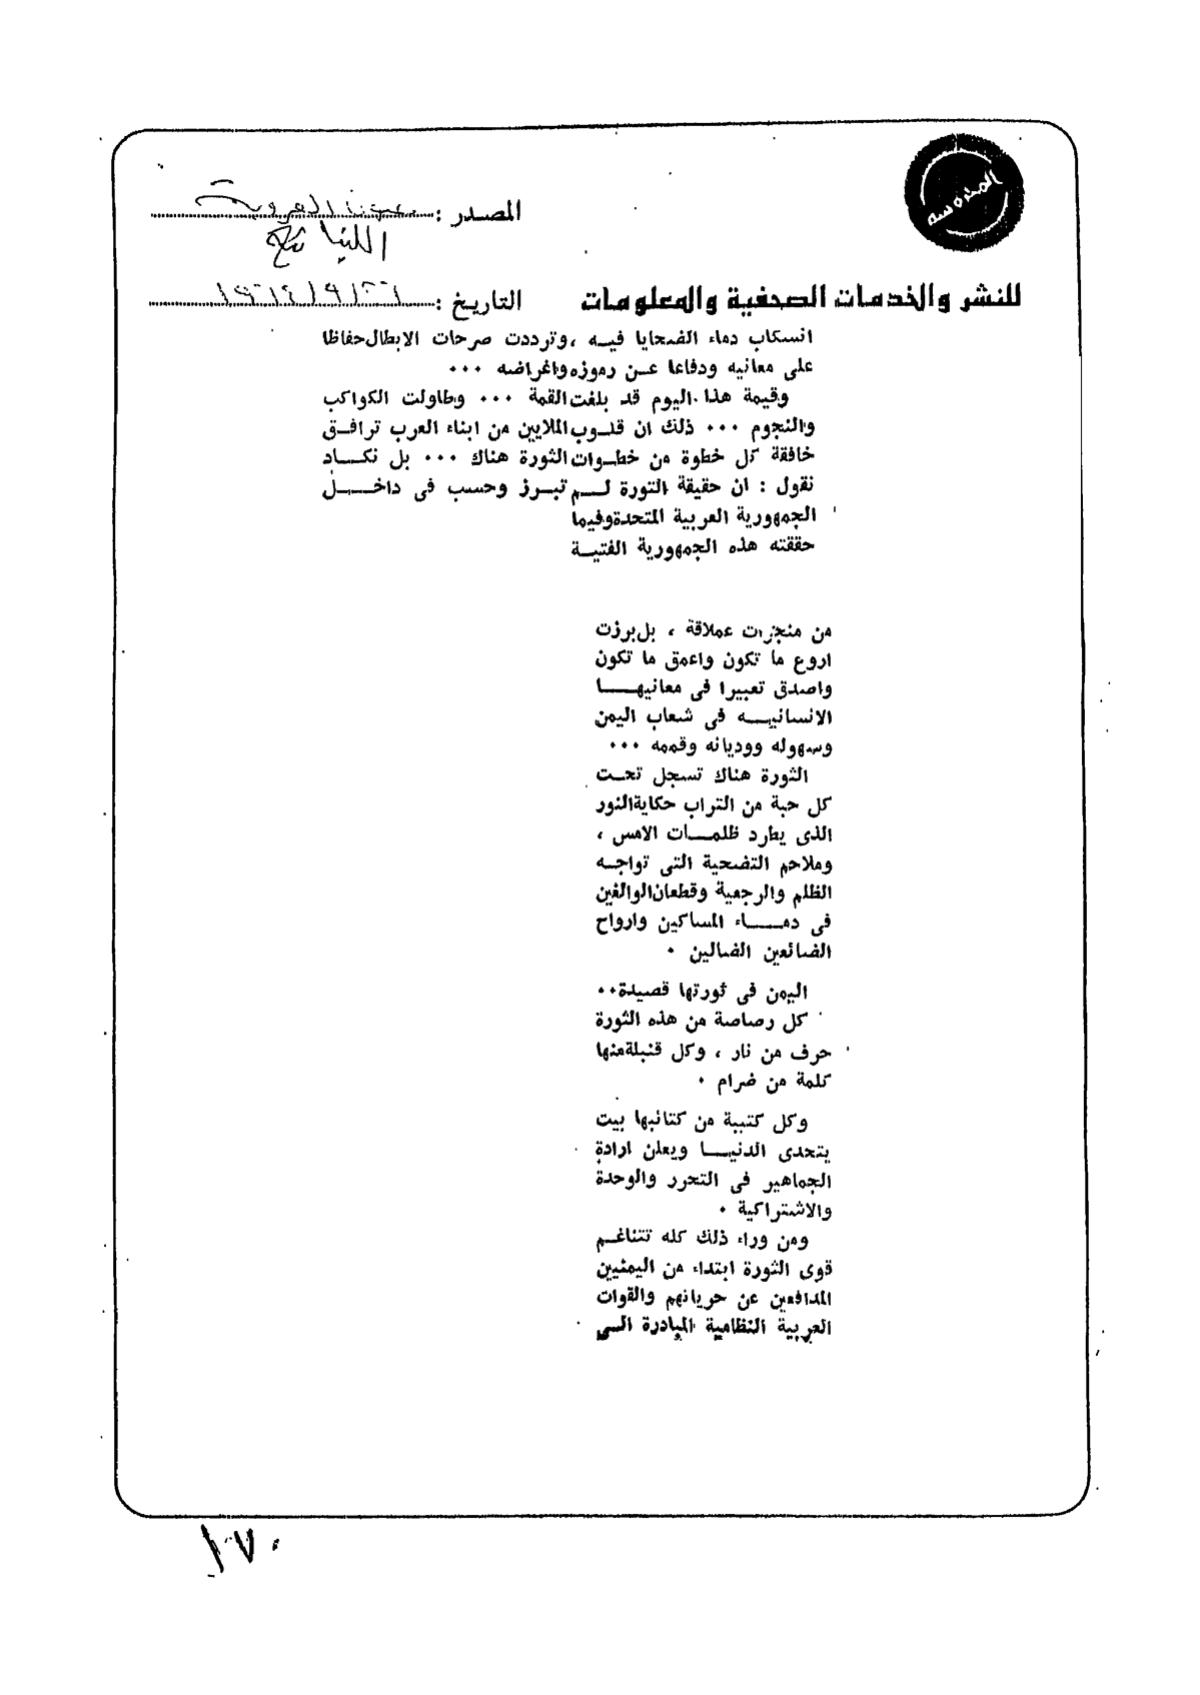 المصدر : صوت العروبة
التاريخ : ١٩٦٤/٩/٢٦
للنشر والخدمات الصحفية والمعلومات
انسكاب دماء الضحايا فيه ، وترددت صرخات الابطال حفاظا
على معانيه ودفاعا عن رموزه واغراضه ...
وقيمة هذا اليوم قد بلغت القمة ... وطاولت الكواكب
والنجوم ... ذلك ان قلوب الملايين من ابناء العرب ترافق
خافقة كل خطوة من خطوات الثورة هناك ... بل نكاد
نقول : ان حقيقة الثورة لم تبرز وحسب فى داخل
الجمهورية العربية المتحدة وفيما
حققته هذه الجمهورية الفتية
من منجزات عملاقة ، بل برزت
اروع ما تكون واعمق ما تكون
واصدق تعبيرا فى معانيها
الانسانيه فى شعاب اليمن
وسهوله ووديانه وقممه ...
الثورة هناك تسجل تحت
كل حبة من التراب حكاية النور
الذى يطرد ظلمات الامس ،
وملاحم التضحية التى تواجه
الظلم والرجعية وقطعان الوالغين
فى دماء المساكين وارواح
الضائعين الضالين .
اليمن فى ثورتها قصيدة ..
كل رصاصة من هذه الثورة
حرف من نار ، وكل قنبلة منها
كلمة من ضرام .
وكل كتيبة من كتائبها بيت
يتحدى الدنيا ويعلن ارادة
الجماهير فى التحرر والوحدة
والاشتراكية .
ومن وراء ذلك كله تتناغم
قوى الثورة ابتداء من اليمنيين
المدافعين عن حرياتهم والقوات
العربية النظامية المبادرة الى
١٧٠